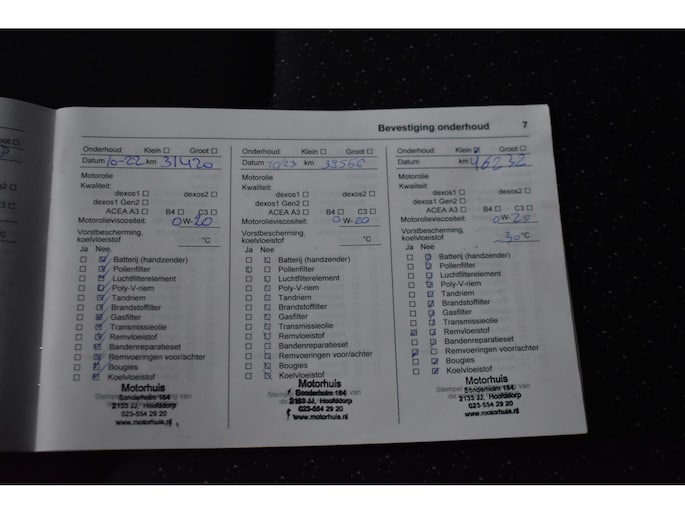 Bevestiging onderhoud 7
Onderhoud: Klein Groot
Datum 10-22 km 31420
Motorolie
Kwaliteit:
dexos1 dexos2
dexos1 Gen2
ACEA A3 B4 C3
Motorolieviscositeit: 0W-20
Vorstbescherming,
koelvloeistof °C
Ja Nee
Batterij (handzender)
Pollenfilter
Luchtfilterelement
Poly-V-riem
Tandriem
Brandstoffilter
Gasfilter
Transmissieolie
Remvloeistof
Bandenreparatieset
Remvoeringen voor/achter
Bougies
Koelvloeistof
Motorhuis
Sonderholm 164
2133 JJ, Hoofddorp
023-554 29 20
www.motorhuis.nl
Onderhoud: Klein Groot
Datum 10/23 km
Motorolie
Kwaliteit:
dexos1 dexos2
dexos1 Gen2
ACEA A3 B4 C3
Motorolieviscositeit: 0W-20
Vorstbescherming,
koelvloeistof °C
Ja Nee
Batterij (handzender)
Pollenfilter
Luchtfilterelement
Poly-V-riem
Tandriem
Brandstoffilter
Gasfilter
Transmissieolie
Remvloeistof
Bandenreparatieset
Remvoeringen voor/achter
Bougies
Koelvloeistof
Motorhuis
Sonderholm 164
2133 JJ, Hoofddorp
023-554 29 20
www.motorhuis.nl
Onderhoud: Klein Groot
Datum km 46232
Motorolie
Kwaliteit:
dexos1 dexos2
dexos1 Gen2
ACEA A3 B4 C3
Motorolieviscositeit: 0W-20
Vorstbescherming,
koelvloeistof 30 °C
Ja Nee
Batterij (handzender)
Pollenfilter
Luchtfilterelement
Poly-V-riem
Tandriem
Brandstoffilter
Gasfilter
Transmissieolie
Remvloeistof
Bandenreparatieset
Remvoeringen voor/achter
Bougies
Koelvloeistof
Motorhuis
Sonderholm 164
2133 JJ, Hoofddorp
023-554 29 20
www.motorhuis.nl